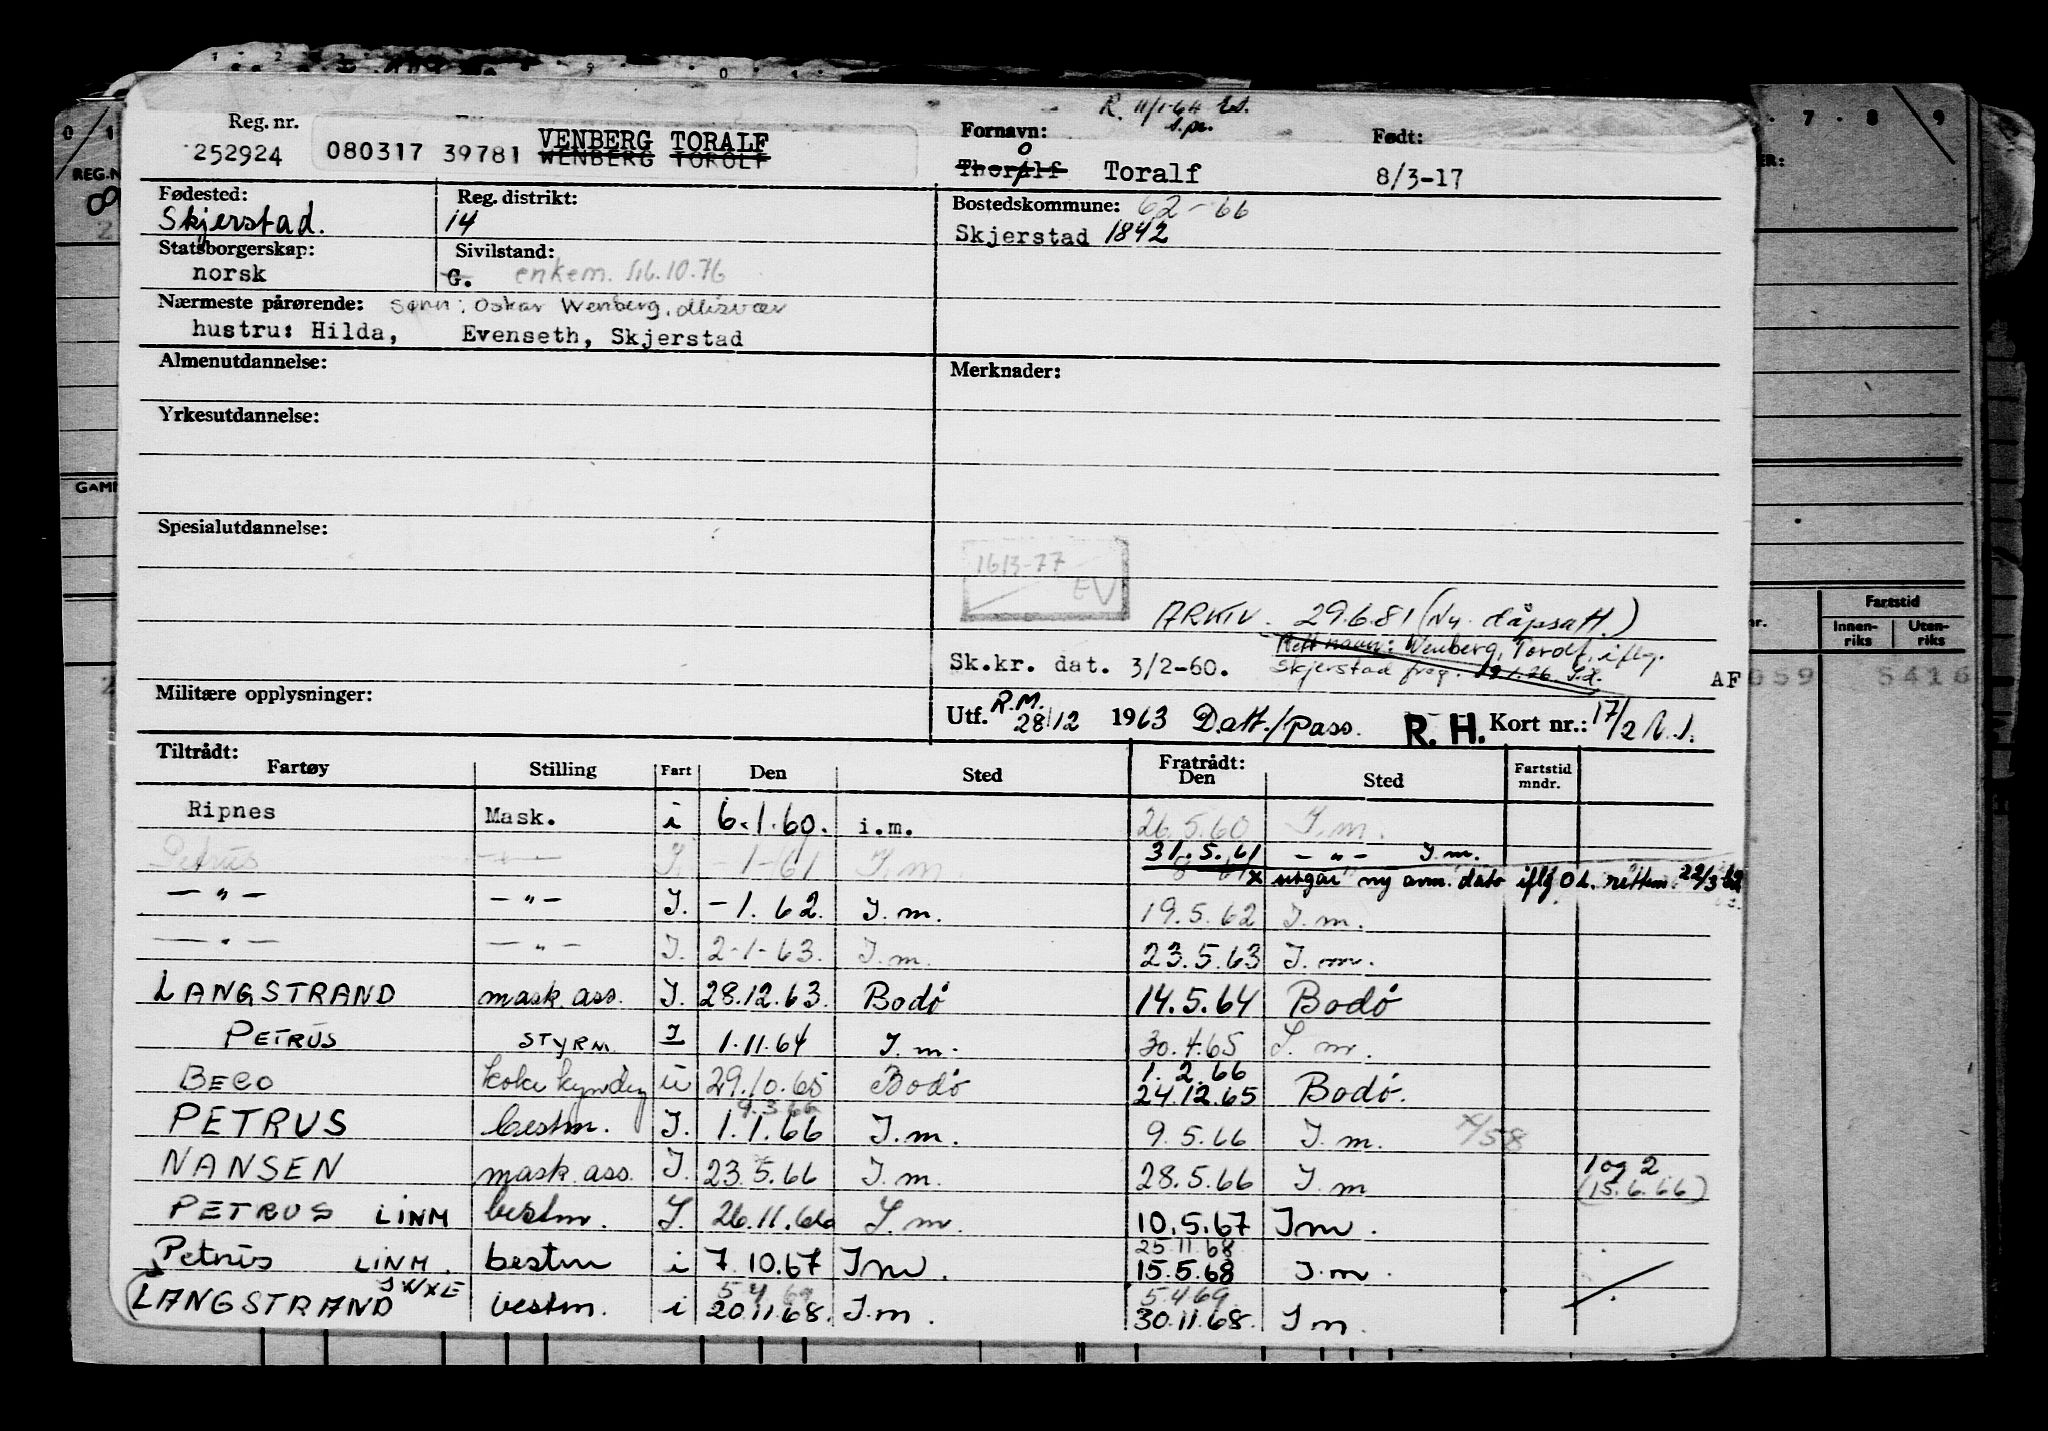 R. 11/1-64
Reg. nr. Fornavn: s.pr. Født:
252924 080317 39781 VENBERG TORALF
WENBERG TOROLF
Thoralf o Toralf 8/3-17
Fødested: Reg. distrikt: Bostedskommune: 62-66
Skjerstad. 14 Skjerstad 1842
Statsborgerskap: Sivilstand:
norsk G. enkem. 16.10.76
Nærmeste pårørende: sønn: Oskar Wenberg, Misvær
hustru: Hilda, Evenseth, Skjerstad
Almenutdannelse: Merknader:
Yrkesutdannelse:
Spesialutdannelse:
1613-77
EV
ARKIV. 29.6.81 (Ny dåpsatt.)
Rett navn: Wenberg, Torolf, iflg.
Sk.kr. dat. 3/2-60. Skjerstad preg. 19.1.26. S.d. AF
Militære opplysninger:
Utf. R.M. 28/12 1963 Datt./pass. R. H. Kort nr.: 17/2
Tiltrådt: Fratrådt:
Fartøy Stilling Fart Den Sted Den Sted Fartstid mndr.
Ripnes Mask. i 6.1.60. i.m. 26.5.60 I.m.
Petrus — " — I. -1-61 I.m. 31.5.61 - " - I.m.
x utgår ny avm. dato iflg. O.L. rettem. 22/3-62
— " — — " — I. -1.62. I.m. 19.5.62 I.m.
— " — — " — I. 2-1-63. I.m. 23.5.63 I.m.
LANGSTRAND mask. ass. I. 28.12.63. Bodø 14.5.64 Bodø
PETRUS STYRM. I 1.11.64 I.m. 30.4.65 I.m.
1.2.66
BECO kokk kyndig u 29.10.65 Bodø 24.12.65 Bodø.
9.3.66
PETRUS bestm. I. 1.1.66 I.m. 9.5.66 I.m. x/58
NANSEN mask. ass. I. 23.5.66 I.m. 28.5.66 I.m 1 og 2
(15.6.66)
PETRUS LINM bestm. I. 26.11.66 I.m. 10.5.67 Im.
25.11.68
Petrus LINM. bestm i 7.10.67 Im. 15.5.68 I.m.
JWXE 5 4 69 5.4 69.
LANGSTRAND bestm. i 20.11.68. I.m. 30.11.68. I m.
0 1 7 8 9
REG.N
GAM
Fartstid
Innen-riks Uten-riks
059 5416